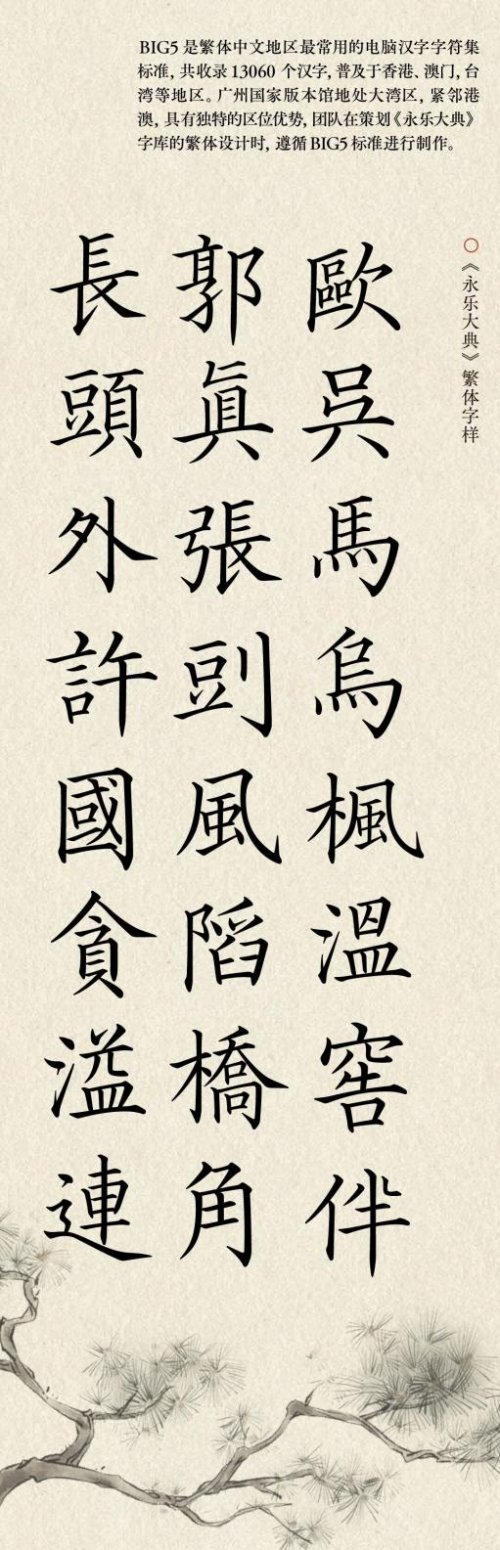 BIG5 是繁体中文地区最常用的电脑汉字字符集
标准，共收录 13060 个汉字，普及于香港、澳门，台
湾等地区。广州国家版本馆地处大湾区，紧邻港
澳，具有独特的区位优势，团队在策划《永乐大典》
字库的繁体设计时，遵循 BIG5 标准进行制作。
《永乐大典》繁体字样
歐吳馬烏楓溫窖伴
郭眞張剅風陷橋角
長頭外許國貪溢連